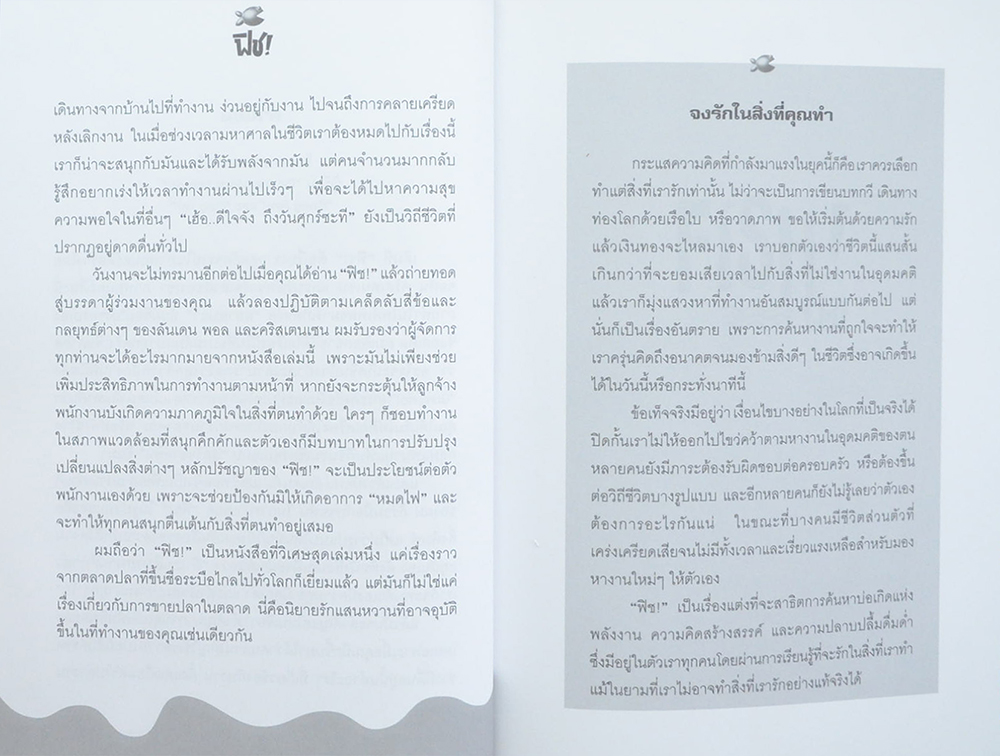 ฟิช!
เดินทางจากบ้านไปที่ทำงาน ง่วนอยู่กับงาน ไปจนถึงการคลายเครียด
หลังเลิกงาน ในเมื่อช่วงเวลามหาศาลในชีวิตเราต้องหมดไปกับเรื่องนี้
เราก็น่าจะสนุกกับมันและได้รับพลังจากมัน แต่คนจำนวนมากกลับ
รู้สึกอยากเร่งให้เวลาทำงานผ่านไปเร็วๆ เพื่อจะได้ไปหาความสุข
ความพอใจในที่อื่นๆ “เฮ้อ..ดีใจจัง ถึงวันศุกร์ซะที” ยังเป็นวิถีชีวิตที่
ปรากฏอยู่ดาดดื่นทั่วไป
วันงานจะไม่ทรมานอีกต่อไปเมื่อคุณได้อ่าน “ฟิช!” แล้วถ่ายทอด
สู่บรรดาผู้ร่วมงานของคุณ แล้วลองปฏิบัติตามเคล็ดลับสี่ข้อและ
กลยุทธ์ต่างๆ ของลันเดน พอล และคริสเตนเซน ผมรับรองว่าผู้จัดการ
ทุกท่านจะได้อะไรมากมายจากหนังสือเล่มนี้ เพราะมันไม่เพียงช่วย
เพิ่มประสิทธิภาพในการทำงานตามหน้าที่ หากยังจะกระตุ้นให้ลูกจ้าง
พนักงานบังเกิดความภาคภูมิใจในสิ่งที่ตนทำด้วย ใครๆ ก็ชอบทำงาน
ในสภาพแวดล้อมที่สนุกคึกคักและตัวเองก็มีบทบาทในการปรับปรุง
เปลี่ยนแปลงสิ่งต่างๆ หลักปรัชญาของ “ฟิช!” จะเป็นประโยชน์ต่อตัว
พนักงานเองด้วย เพราะจะช่วยป้องกันมิให้เกิดอาการ “หมดไฟ” และ
จะทำให้ทุกคนสนุกตื่นเต้นกับสิ่งที่ตนทำอยู่เสมอ
ผมถือว่า “ฟิช!” เป็นหนังสือที่วิเศษสุดเล่มหนึ่ง แค่เรื่องราว
จากตลาดปลาที่ขึ้นชื่อระบือไกลไปทั่วโลกก็เยี่ยมแล้ว แต่มันก็ไม่ใช่แค่
เรื่องเกี่ยวกับการขายปลาในตลาด นี่คือนิยายรักแสนหวานที่อาจอุบัติ
ขึ้นในที่ทำงานของคุณเช่นเดียวกัน
จงรักในสิ่งที่คุณทำ
กระแสความคิดที่กำลังมาแรงในยุคนี้ก็คือเราควรเลือก
ทำแต่สิ่งที่เรารักเท่านั้น ไม่ว่าจะเป็นการเขียนบทกวี เดินทาง
ท่องโลกด้วยเรือใบ หรือวาดภาพ ขอให้เริ่มต้นด้วยความรัก
แล้วเงินทองจะไหลมาเอง เราบอกตัวเองว่าชีวิตนี้แสนสั้น
เกินกว่าที่จะยอมเสียเวลาไปกับสิ่งที่ไม่ใช่งานในอุดมคติ
แล้วเราก็มุ่งแสวงหาที่ทำงานอันสมบูรณ์แบบกันต่อไป แต่
นั่นก็เป็นเรื่องอันตราย เพราะการค้นหางานที่ถูกใจจะทำให้
เราครุ่นคิดถึงอนาคตจนมองข้ามสิ่งดีๆ ในชีวิตซึ่งอาจเกิดขึ้น
ได้ในวันนี้หรือกระทั่งนาทีนี้
ข้อเท็จจริงมีอยู่ว่า เงื่อนไขบางอย่างในโลกที่เป็นจริงได้
ปิดกั้นเราไม่ให้ออกไปไขว่คว้าตามหางานในอุดมคติของตน
หลายคนยังมีภาระต้องรับผิดชอบต่อครอบครัว หรือต้องขึ้น
ต่อวิถีชีวิตบางรูปแบบ และอีกหลายคนก็ยังไม่รู้เลยว่าตัวเอง
ต้องการอะไรกันแน่ ในขณะที่บางคนมีชีวิตส่วนตัวที่
เคร่งเครียดเสียจนไม่มีทั้งเวลาและเรี่ยวแรงเหลือสำหรับมอง
หางานใหม่ๆ ให้ตัวเอง
“ฟิช!” เป็นเรื่องแต่งที่จะสาธิตการค้นหาบ่อเกิดแห่ง
พลังงาน ความคิดสร้างสรรค์ และความปลาบปลื้มดื่มด่ำ
ซึ่งมีอยู่ในตัวเราทุกคนโดยผ่านการเรียนรู้ที่จะรักในสิ่งที่เราทำ
แม้ในยามที่เราไม่อาจทำสิ่งที่เรารักอย่างแท้จริงได้